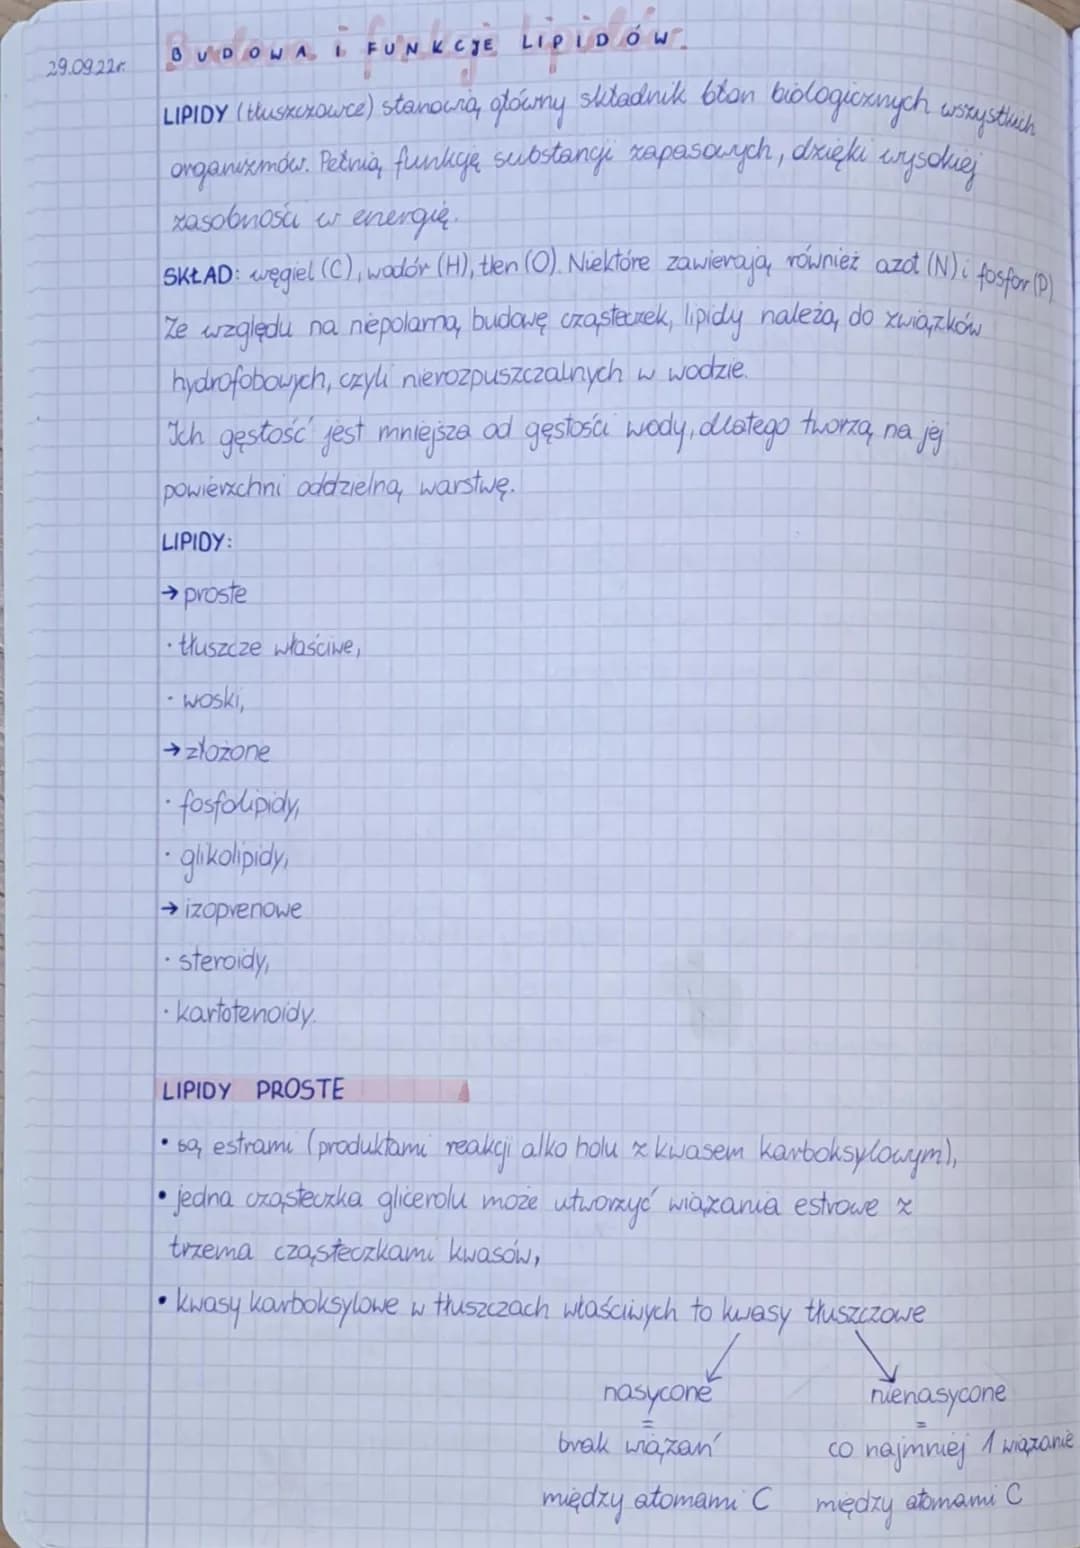 29.09.22r.
BUDOWA i FUNKCJE LIPIDÓW.
LIPIDY (tłuszczowce) stanowią główny składnik błon biologicznych wszystkich
organizmów. Pełnią funkcję substancji zapasowych, dzięki wysokiej
zasobności w energię.
SKŁAD: węgiel (C), wodór (H), tlen (O). Niektóre zawierają również azot (N) i fosfor (P)
Ze względu na niepolarną budowę cząsteczek, lipidy należą do związków
hydrofobowych, czyli nierozpuszczalnych w wodzie.
Ich gęstość jest mniejsza od gęstości wody, dlatego tworzą na jej
powierzchni oddzielną warstwę.
LIPIDY:
→ proste
· tłuszcze właściwe,
· woski,
→ złożone
· fosfolipidy,
· glikolipidy,
→ izoprenowe
· steroidy,
· kartotenoidy.
LIPIDY PROSTE
• są estrami (produktami reakcji alkoholu z kwasem karboksylowym),
• jedna cząsteczka glicerolu może utworzyć wiązania estrowe z
trzema cząsteczkami kwasów,
• kwasy karboksylowe w tłuszczach właściwych to kwasy tłuszczowe
nasycone nienasycone
= =
brak wiązań co najmniej 1 wiązanie
między atomami C między atomami C